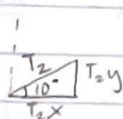 T₂
10°
T₂y
T₂x